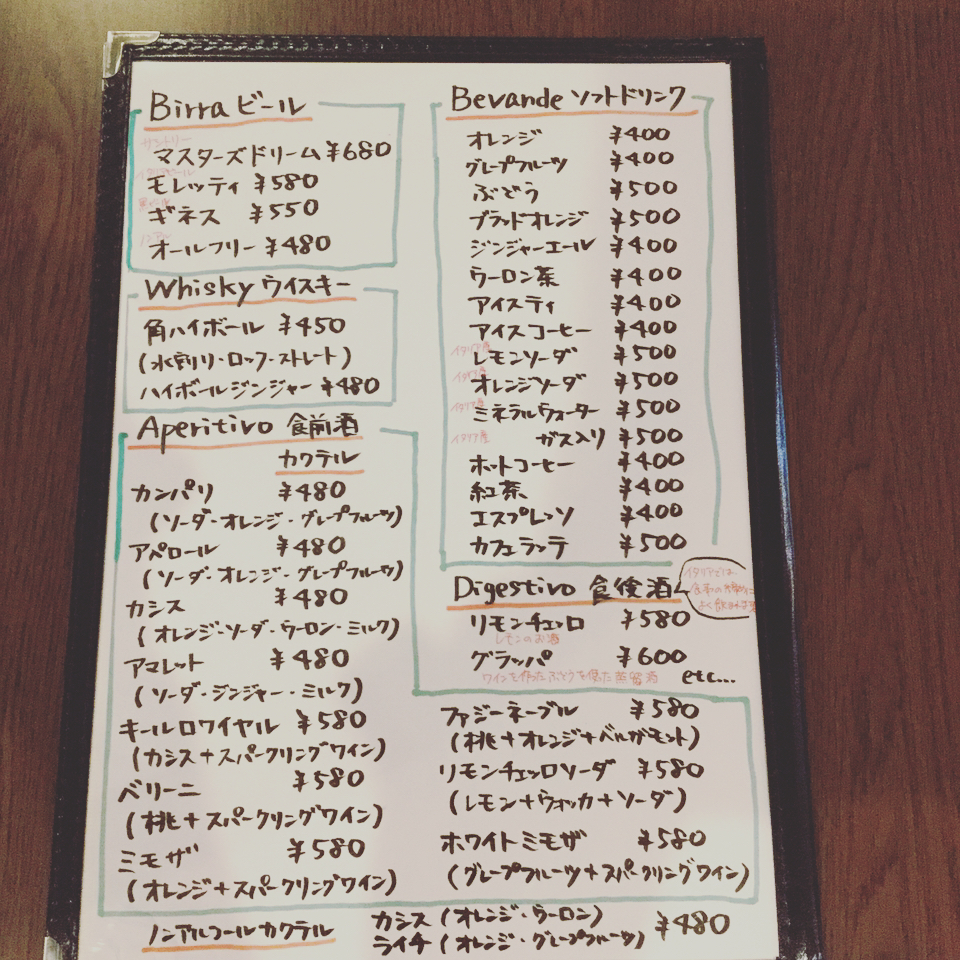 Birra ビール
サントリー
マスターズドリーム ¥680
イタリアビール
モレッティ ¥580
黒ビール
ギネス ¥550
ノンアル
オールフリー ¥480
Whisky ウイスキー
角ハイボール ¥450
(水割り・ロック・ストレート)
ハイボールジンジャー ¥480
Aperitivo 食前酒
カクテル
カンパリ ¥480
(ソーダ・オレンジ・グレープフルーツ)
アペロール ¥480
(ソーダ・オレンジ・グレープフルーツ)
カシス ¥480
(オレンジ・ソーダ・ウーロン・ミルク)
アマレット ¥480
(ソーダ・ジンジャー・ミルク)
キールロワイヤル ¥580
(カシス+スパークリングワイン)
ベリーニ ¥580
(桃+スパークリングワイン)
ミモザ ¥580
(オレンジ+スパークリングワイン)
Bevande ソフトドリンク
オレンジ ¥400
グレープフルーツ ¥400
ぶどう ¥500
ブラッドオレンジ ¥500
ジンジャーエール ¥400
ウーロン茶 ¥400
アイスティ ¥400
アイスコーヒー ¥400
イタリア産
レモンソーダ ¥500
イタリア産
オレンジソーダ ¥500
イタリア産
ミネラルウォーター ¥500
イタリア産 ガス入り ¥500
ホットコーヒー ¥400
紅茶 ¥400
エスプレッソ ¥400
カフェラッテ ¥500
Digestivo 食後酒
イタリアでは
よく飲
リモンチェッロ ¥580
レモンのお酒
グラッパ ¥600
ワインを作ったぶどうを使た蒸留酒 etc...
ファジーネーブル ¥580
(桃+オレンジ+ベルガモット)
リモンチェッロソーダ ¥580
(レモン+ウォッカ+ソーダ)
ホワイトミモザ ¥580
(グレープフルーツ+スパークリングワイン)
ノンアルコールカクテル
カシス (オレンジ・ウーロン) ¥480
ライチ (オレンジ・グレープフルーツ)